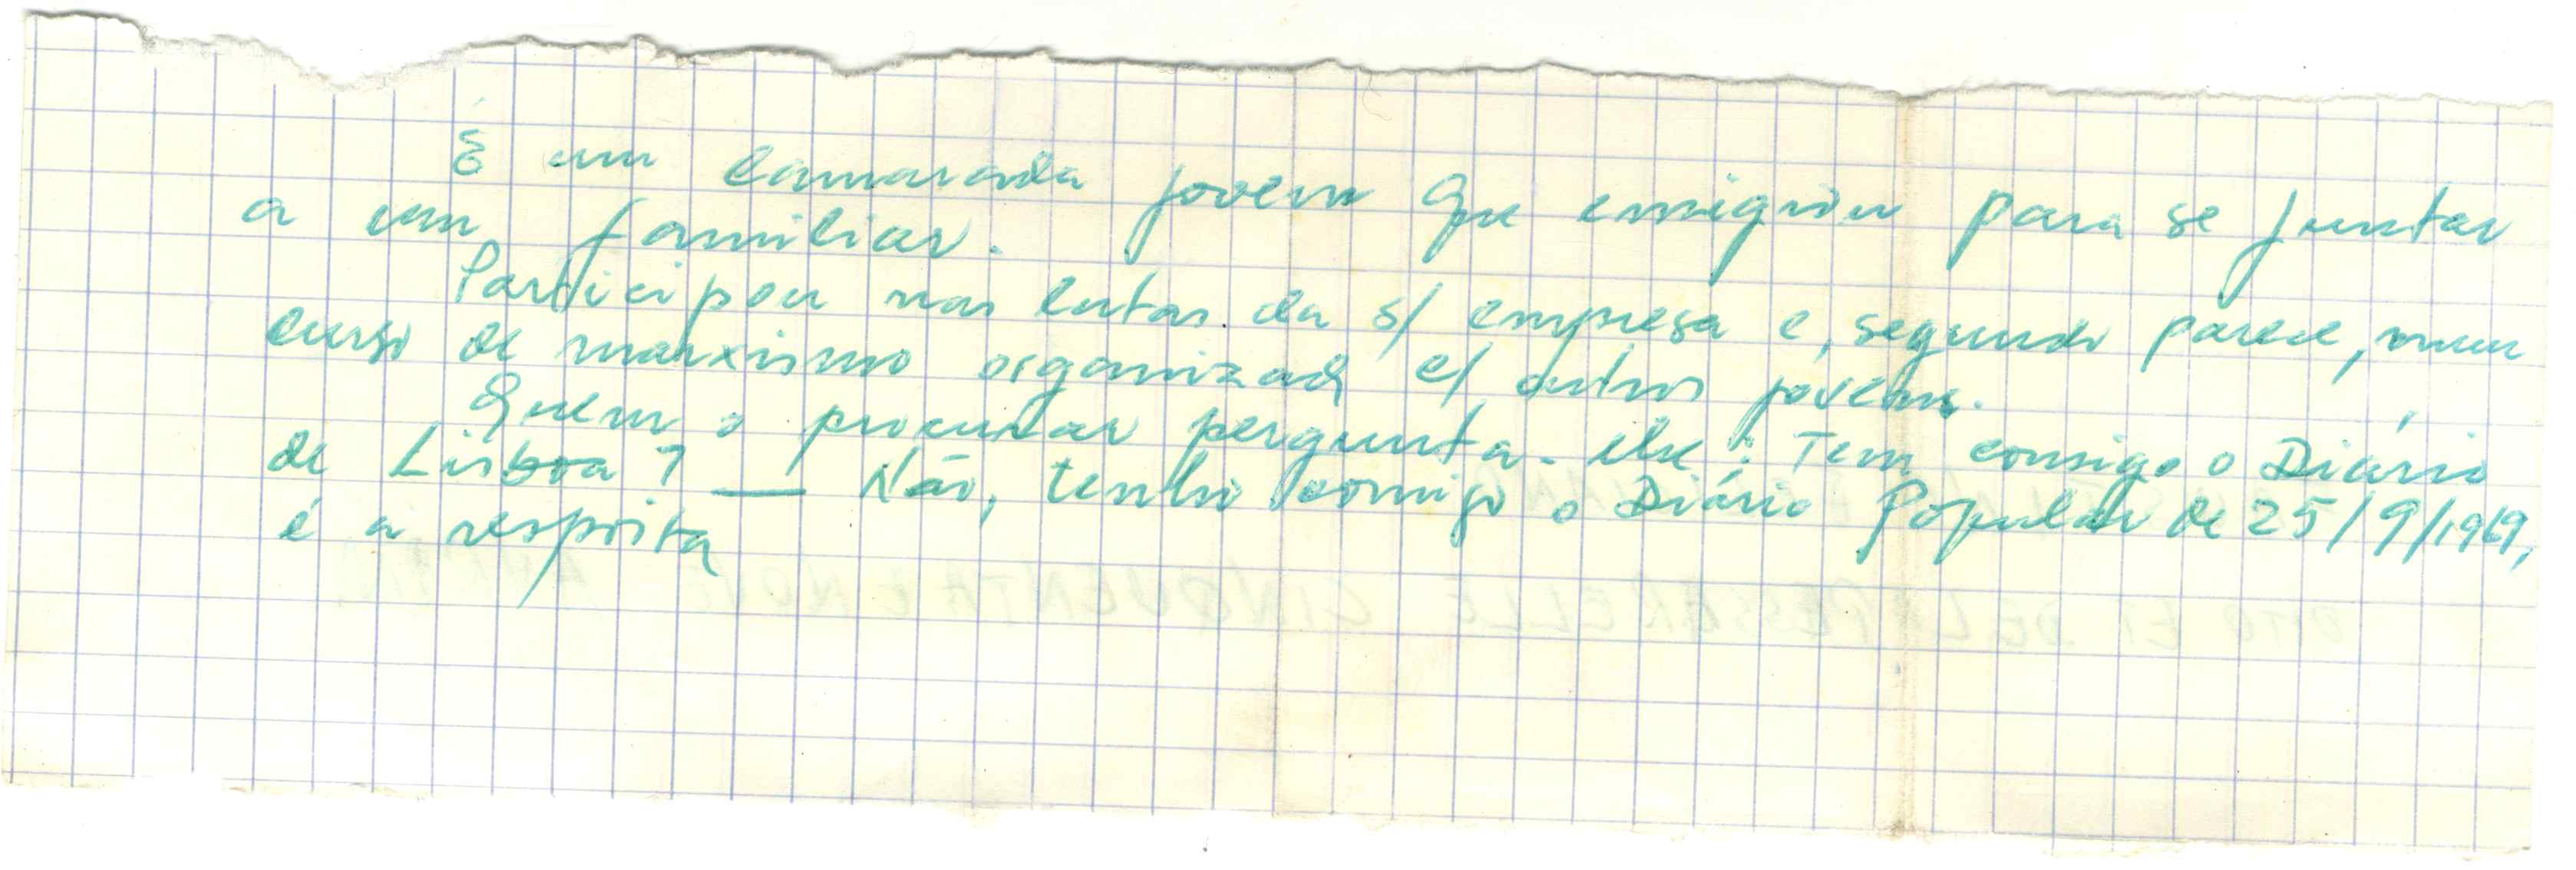 É um camarada jovem que emigrou para se juntar
a um familiar.
Participou nas lutas da s/ empresa e, segundo parece, num
curso de marxismo organizado c/ outros jovens.
Quem o procurar pergunta-lhe: Tem consigo o Diário
de Lisboa? — Não, tenho comigo o Diário Popular de 25/9/1969,
é a resposta